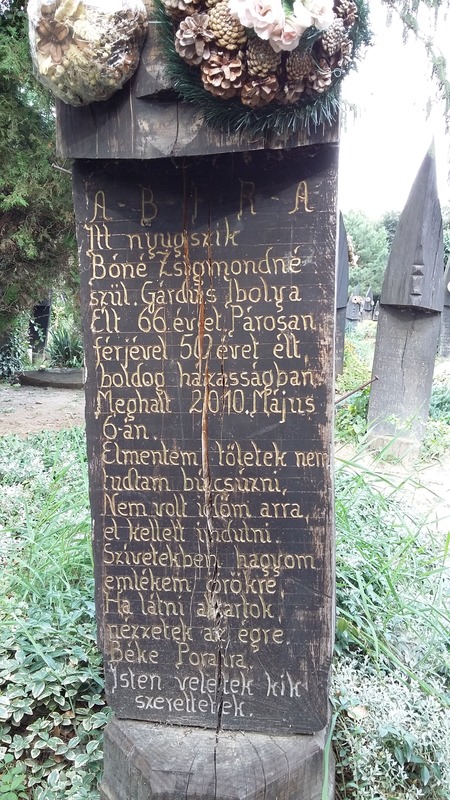 A - B - F - R - A
Itt nyugszik
Bóné Zsigmondné
szül. Gárdus Ibolya
Élt 66 évet. Párosan
férjével 50 évet élt
boldog házasságban.
Meghalt 2010. Május
6-án.
Elmentem tőletek nem
tudtam búcsúzni,
Nem volt időm arra,
el kellett indulni.
Szivetekben hagyom
emlékem örökre,
Ha látni akartok,
nézzetek az égre
Béke Poraira,
Isten veletek kik
szerettetek.